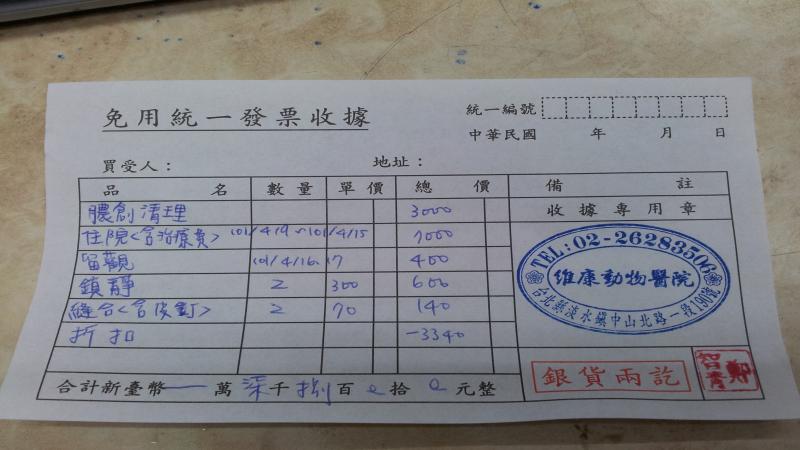 免用統一發票收據
統一編號
中華民國 年 月 日
買受人： 地址：
品名 數量 單價 總價 備註
膿創清理 3000
收據專用章
住院<含治療費> 101/4/9~101/4/15 7000
留觀 101/4/16~17 400
鎮靜 2 300 600
縫合<含皮釘> 2 70 140
折扣 -3340
TEL:02-26283506
維康動物醫院
台北縣淡水鎮中山北路一段190號
銀貨兩訖
鄭智青
合計新臺幣—萬柒千捌百0拾0元整